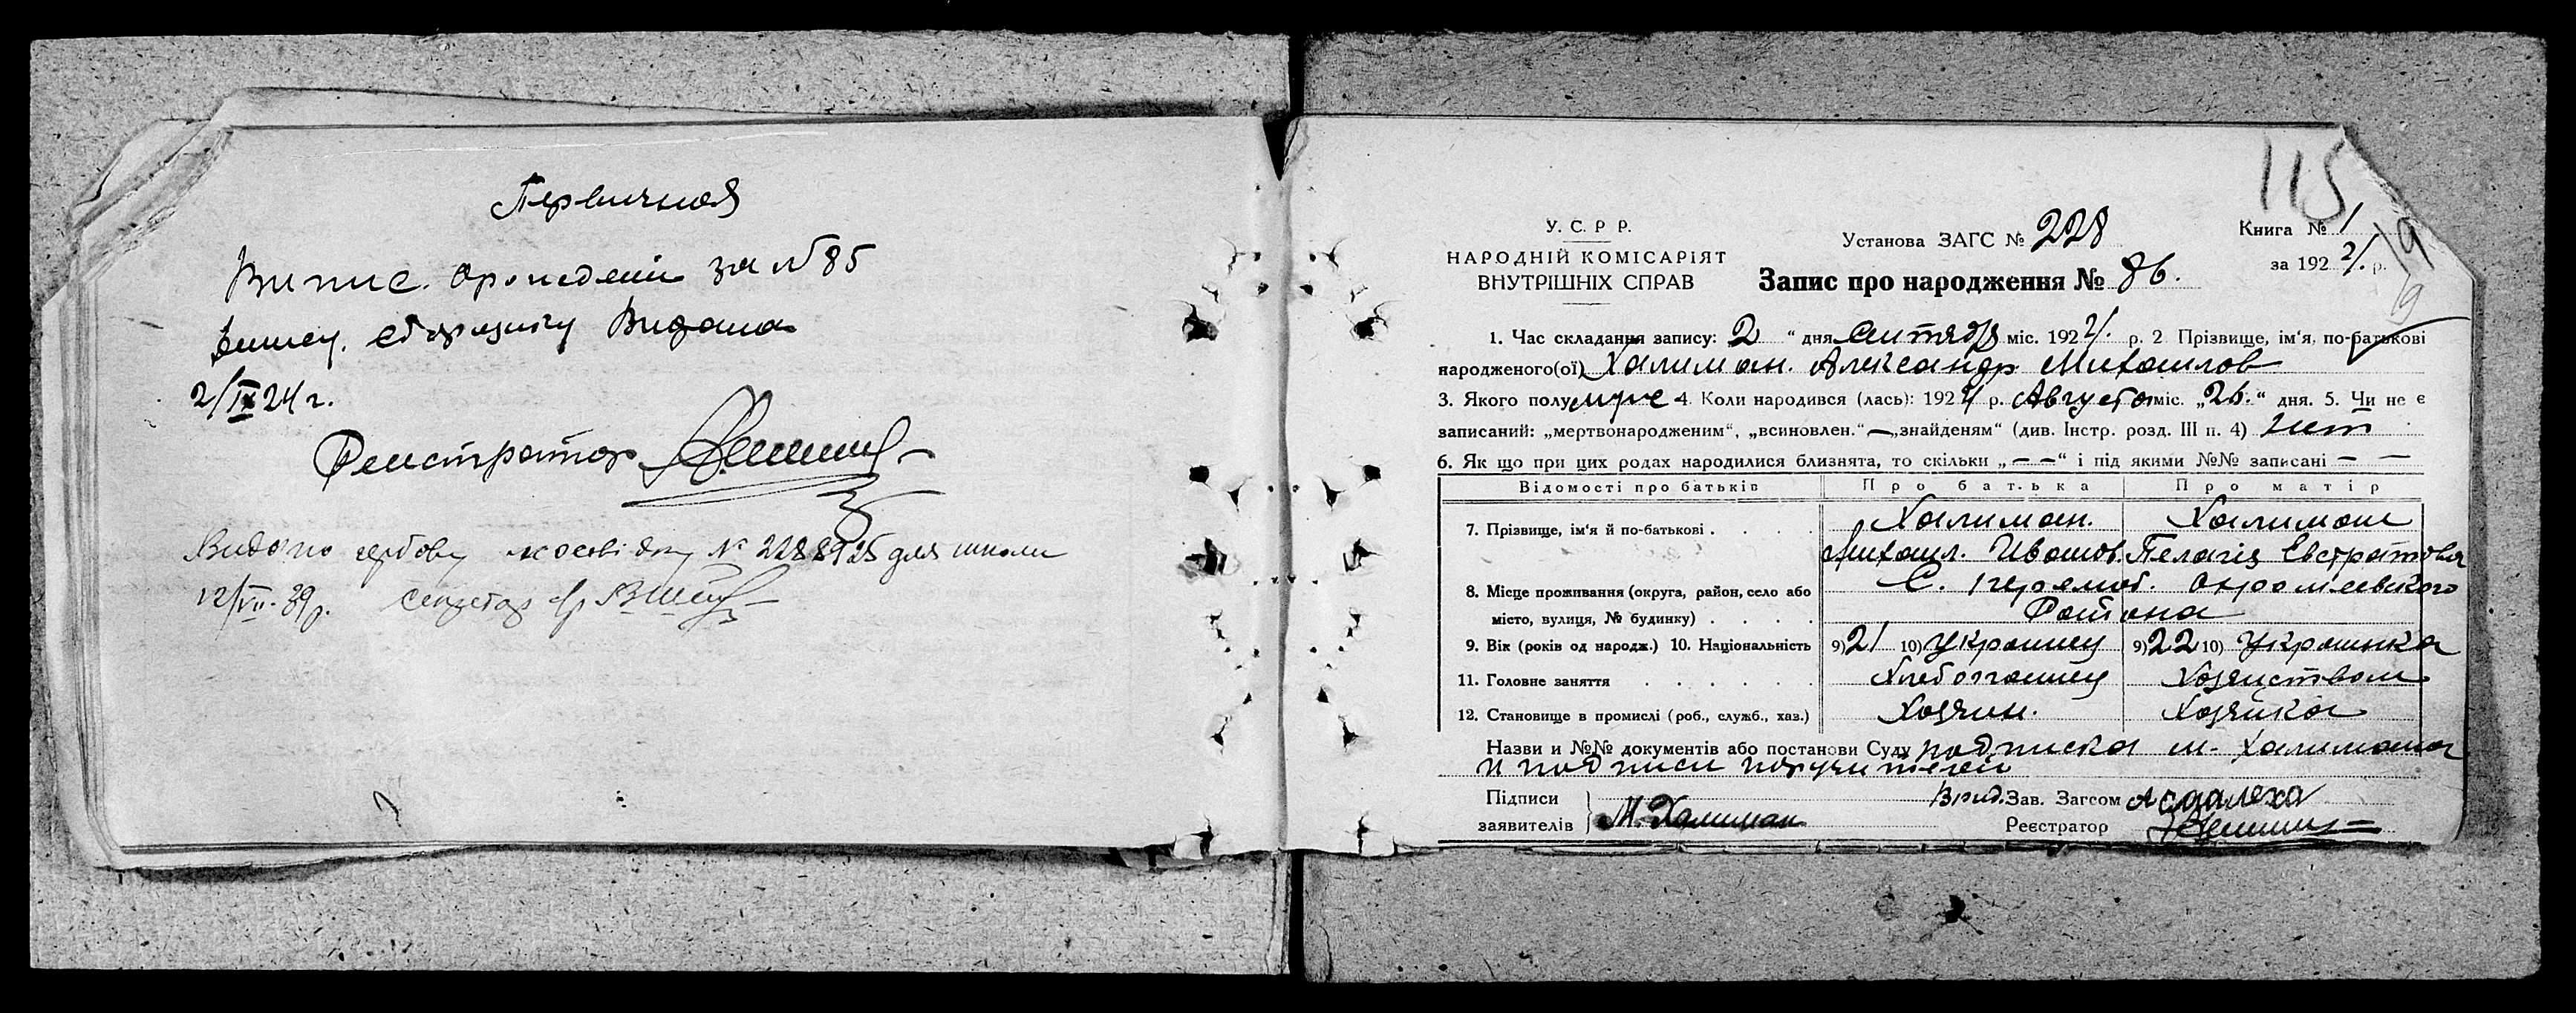 Первичная
Выпис. о рождени за № 85
Видана
2/IX 24 г.
Регистратор
Видано посвідку № 2288925 для школи
12/VII-39 р. секретар
115
У. С. Р Р.
НАРОДНІЙ КОМІСАРІЯТ
ВНУТРІШНІХ СПРАВ
Установа ЗАГС № 228
Запис про народження № 86.
Книга № 1
за 1924. р.
1. Час складання запису: 2 " дня Сентября міс. 1924. р. 2 Прізвище, ім'я, по-батькові
народженого(ої) Халиман. Александр Михаилов
3. Якого полу муже 4. Коли народився (лась): 1924 р. Августа міс. „26." дня. 5. Чи не є
записаний: „мертвонародженим", „всиновлен."—„знайденям" (див. Інстр. розд. III п. 4) нет
6. Як що при цих родах народилися близнята, то скільки „— —" і під якими №№ записані — —
Відомості про батьків Про батька Про матір
7. Прізвище, ім'я й по-батькові . . . . Халиман. Халиман
Михаил. Иванов. Пелагія Евстратовна
8. Місце проживання (округа, район, село або С.
місто, вулиця, № будинку) . . . . Раиона
9. Вік (років од народж.) 10. Національність 9) 21 10) Украинец 9) 22 10) Украинка
11. Головне заняття . . . . . . Хлебопашец Хозяиством
12. Становище в промислі (роб., служб., хаз.) Хозяин. Хозяйка
Назви и №№ документів або постанови Суду подписка М. Халимана
и подписи поручителей
Підписи
заявителів М. Халиман
Врид. Зав. Загсом
Реєстратор